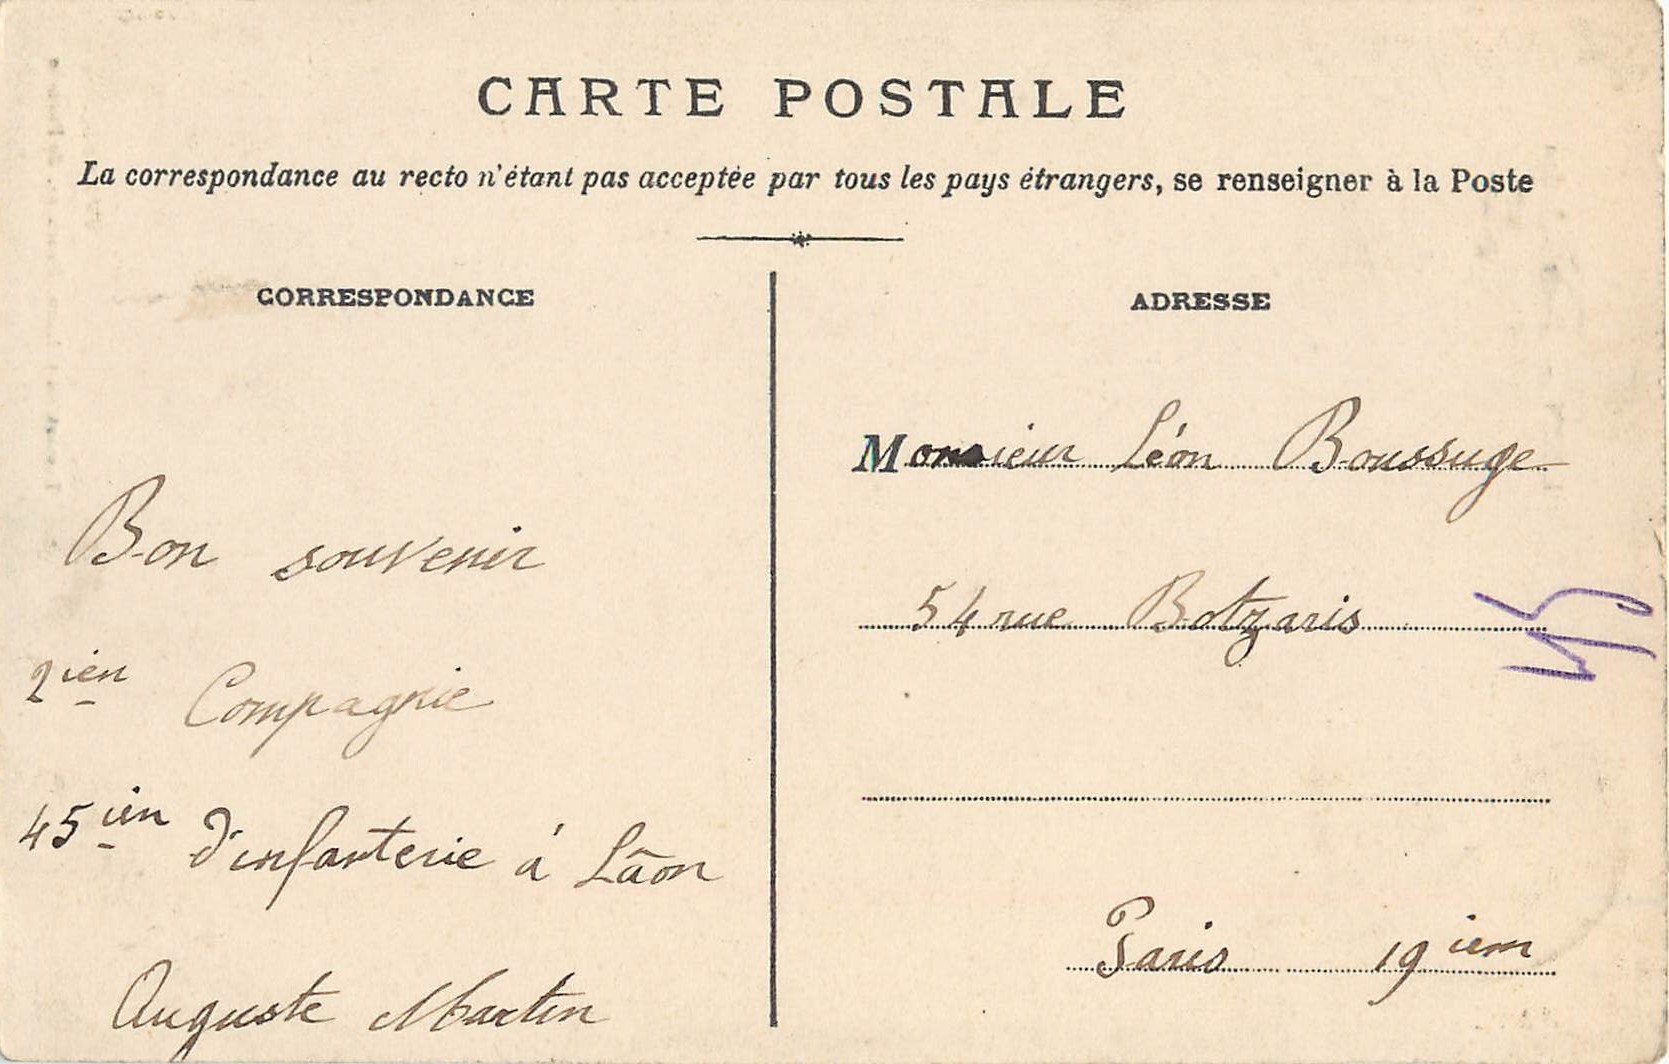 CARTE POSTALE
La correspondance au recto n'étant pas acceptée par tous les pays étrangers, se renseigner à la Poste
CORRESPONDANCE
Bon souvenir
2ièn Compagnie
45ièn d'infanterie à Lâon
Auguste Martin
ADRESSE
Monsieur Léon Boussuge
54 rue Botzaris
Paris 19iem